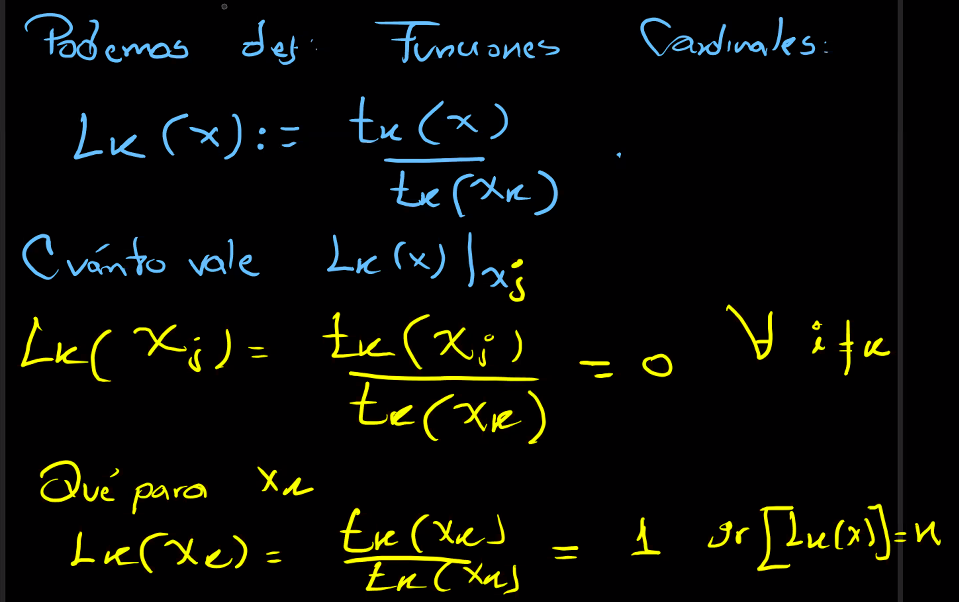 Podemos def: Funciones Cardinales:
Lk(x) := tk(x) / tk(xk)
Cuánto vale Lk(x)|xj
Lk(xj) = tk(xj) / tk(xk) = 0 ∀ i ≠ k
Qué para xk
Lk(xk) = tk(xk) / tk(xk) = 1 gr[Lk(x)] = n